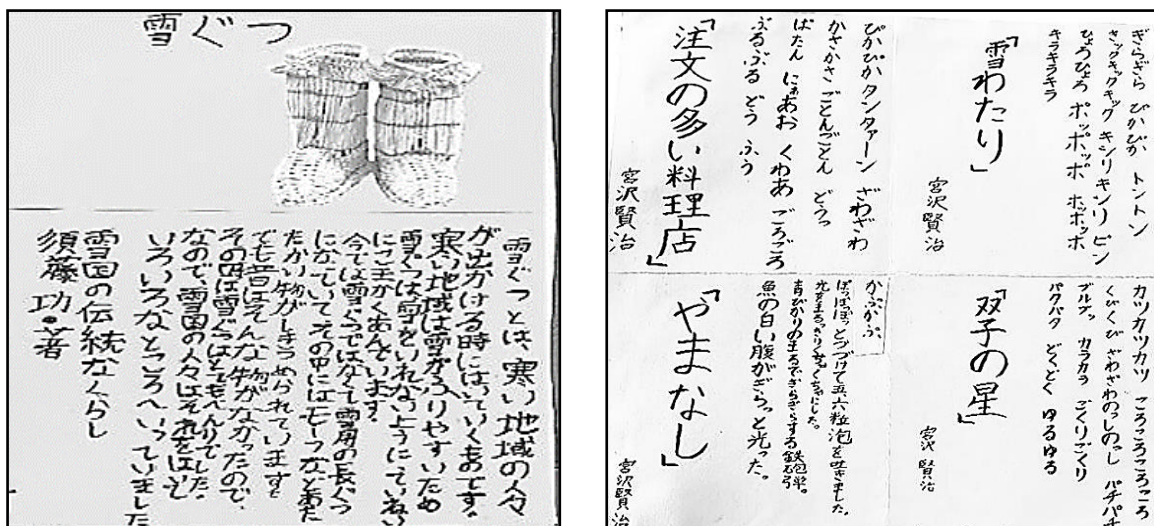 雪ぐつ
雪ぐつとは、寒い地域の人々
が出かける時にはいていくものです。
寒い地域は雪がふりやすいため
雪ぐつは雪をいれないようにていねい
にこまかくあんでいます。
今では雪ぐつではなくて雪用の長ぐつ
その中にはモーフなどあた
たかい物がしきつめられています
でも昔はそんな物がなかったので、
その時は雪ぐつはとてもべんりでした。
なので、雪国の人々はそれをはいて
いろいろなところへいっていました
雪国の伝統なくらし
須藤功・著
ぎらぎら ぴかぴか トントン
キックキックキック キンリキンリ ピン
ひょろひょろ ポッポッポ ポッポッポ
キラキラキラ
「雪わたり」
宮沢賢治
ぴかぴかタンタアーン ざわざわ
かさかさ ごとんごとん どうっ
ばたん にゃあお くわあ ごろごろ
ぶるぶる どう ふう
「注文の多い料理店」
宮沢賢治
カツカツカツ ころころころっころ
くびくび ざわざわのっしのっし パチパチ
ブルブッ カラカラ ごくりごくり
パクパク どくどく ゆるゆる
「双子の星」
宮沢賢治
かぷかぷ、
ぽっぽっぽっとつづけて五、六粒泡を吐きました。
光をまるっきりくちゃくちゃにした。
青びかりのまるでぎらぎらする鉄砲弾。
魚の白い腹がぎらっと光った。
「やまなし」
宮沢賢治